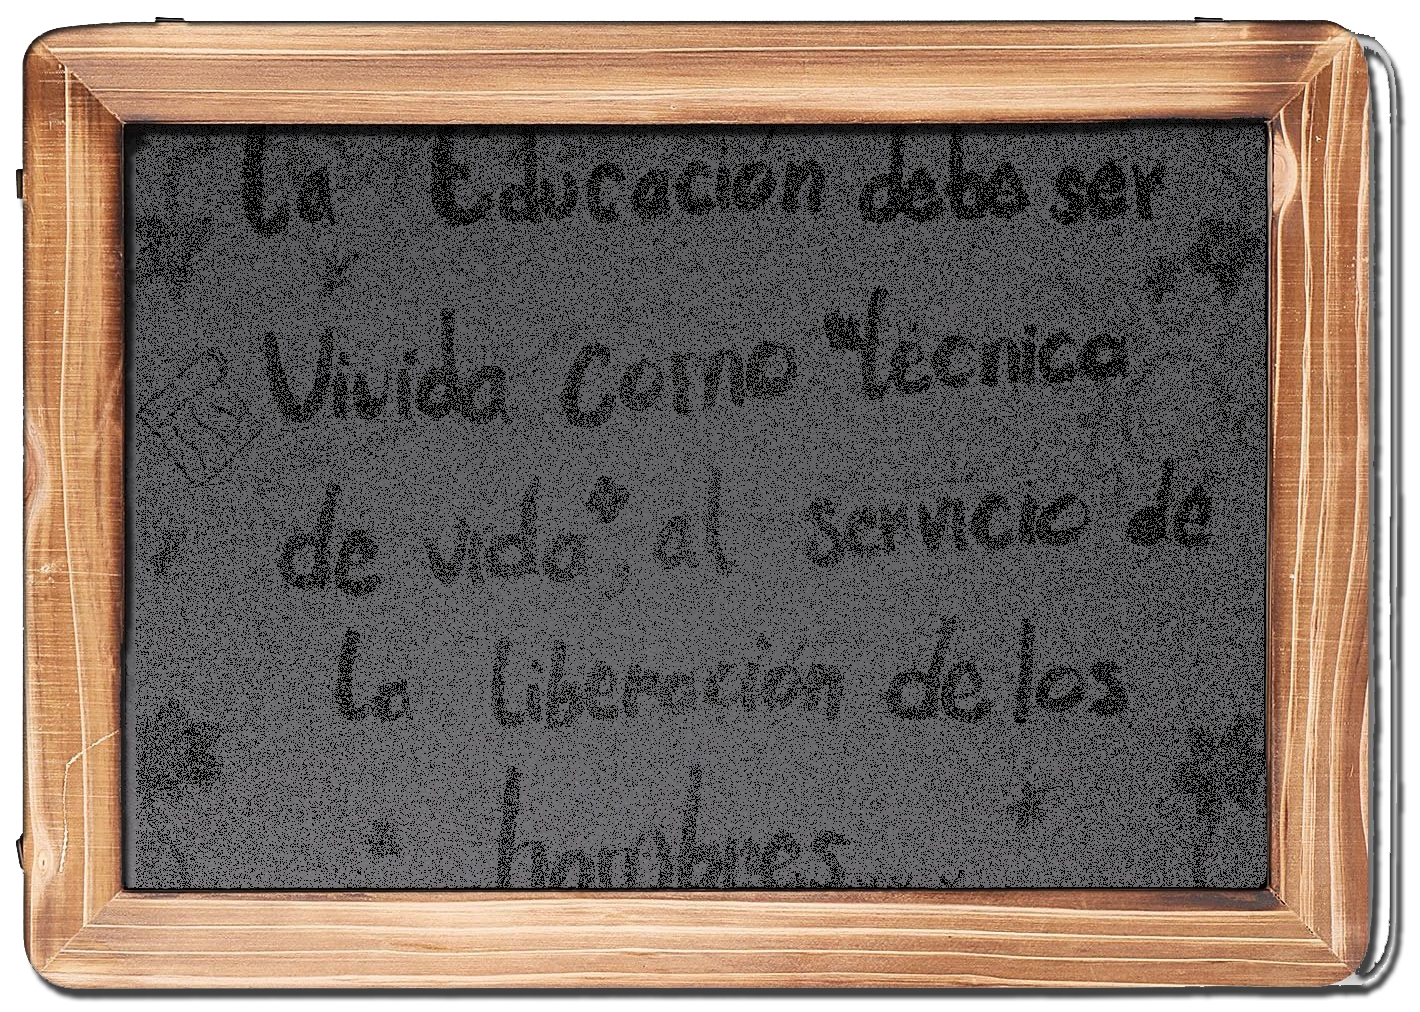 La Educación debe ser
Vivida como "técnica
de vida", al servicio de
la liberación de los
hombres...